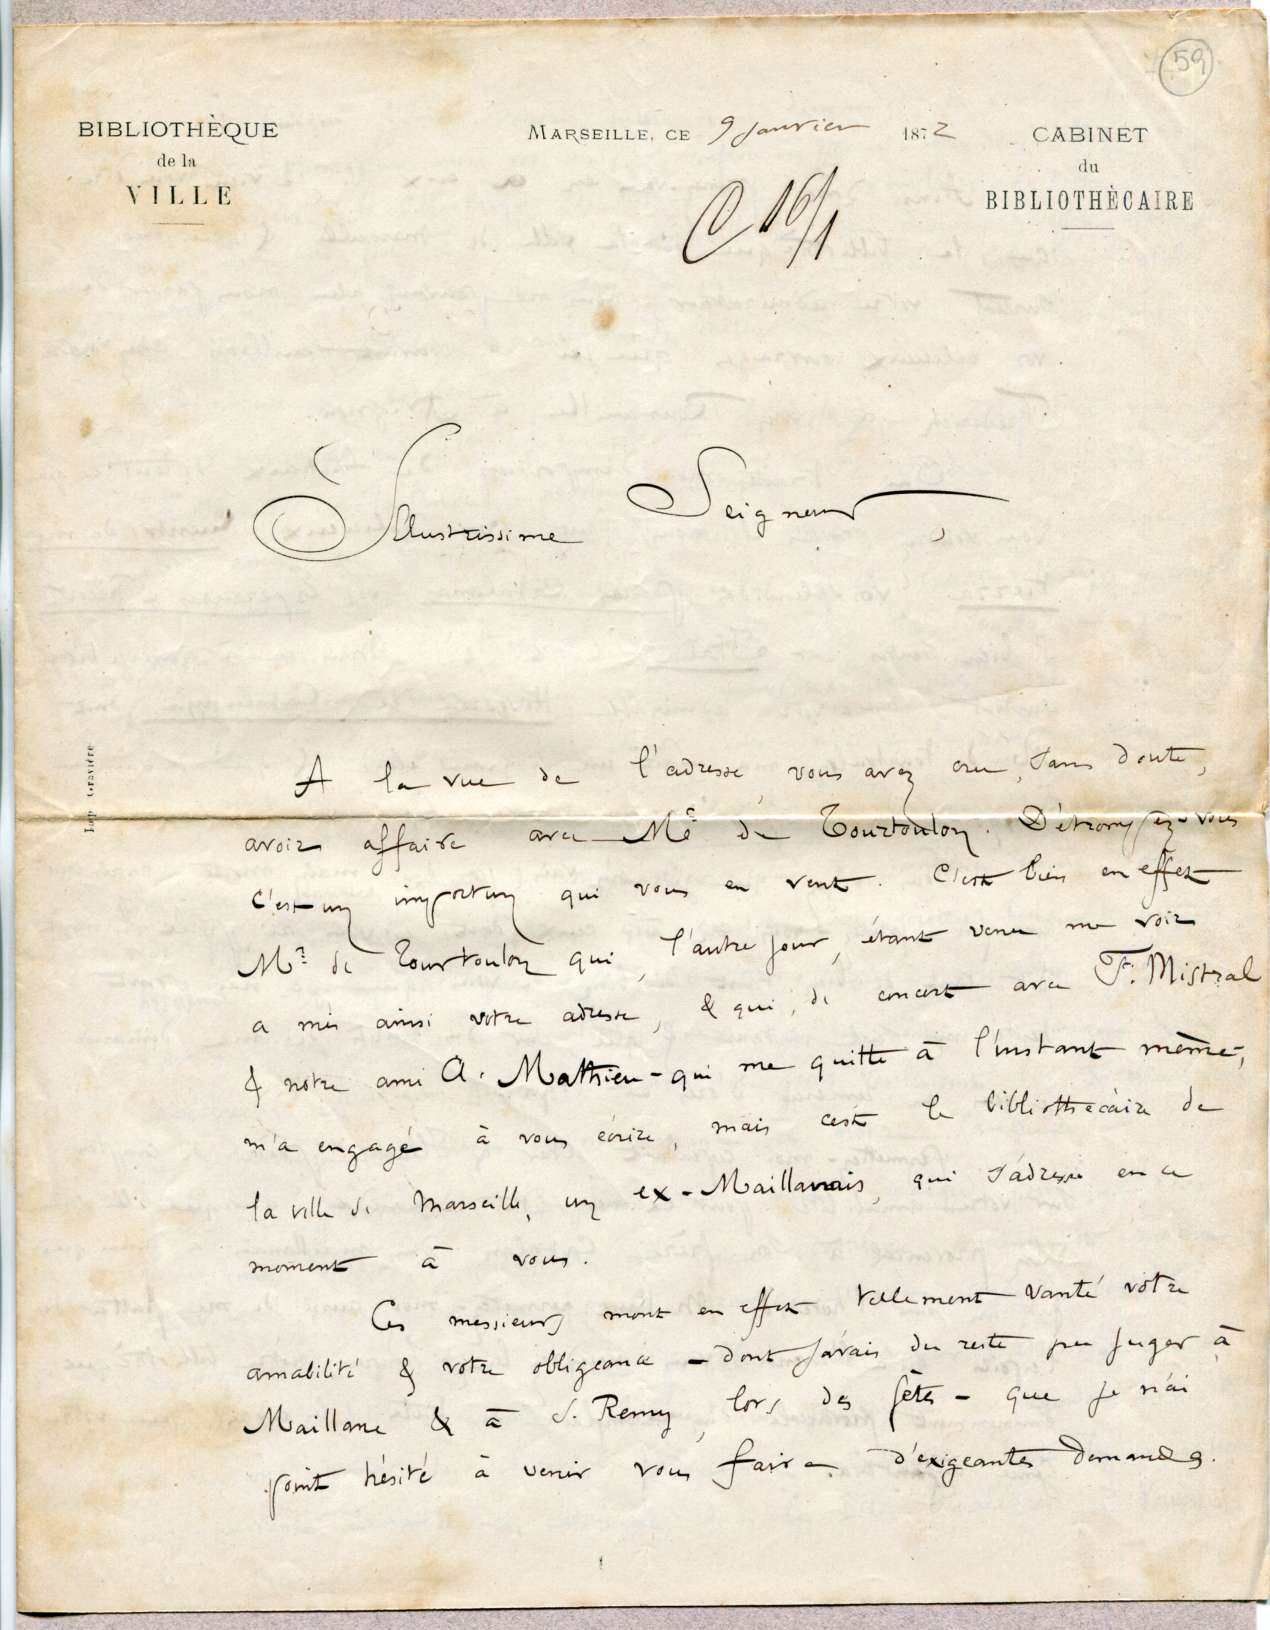 59
BIBLIOTHÈQUE
de la
VILLE
MARSEILLE, CE 9 Janvier 1872
CABINET
du
BIBLIOTHÈCAIRE
C 16/1
Illustrissime Seigneur,
Imp Gravière
A la vue de l'adresse, vous avez cru, sans doute,
avoir affaire avec Mr de Tourtoulon. Détrompez-vous
c'est un importun qui vous en veut. C'est bien en effet
Mr de Tourtoulon qui, l'autre jour, étant venu me voir
a mis ainsi votre adresse, & qui, de concert avec F. Mistral
& notre ami A. Mathieu - qui me quitte à l'instant même -,
m'a engagé à vous écrire, mais c'est le bibliothécaire de
la ville de Marseille, un ex-Maillanais, qui s'adresse en ce
moment à vous.
Ces messieurs m'ont en effet tellement vanté votre
amabilité & votre obligeance - dont j'avais du reste pu juger à
Maillane & à S. Remy, lors des fêtes - que je n'ai
point hésité à venir vous faire d'exigeantes demandes.